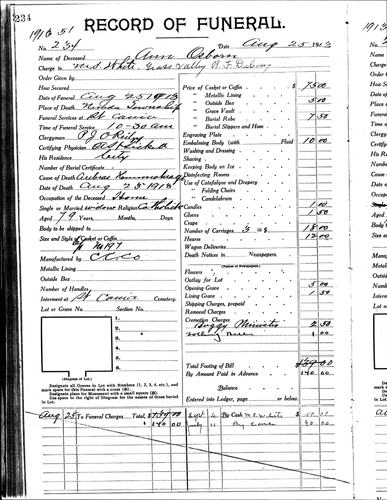 234
1913 51
RECORD OF FUNERAL.
No. 234 Date Aug 25 1913
Name of Deceased Ann Osborn
Charge to M.S. White Grass Valley R.F. Delivery
Order Given by
How Secured
Date of Funeral Aug 25 1913
Place of Death Nevada Township
Funeral Services at St Canice
Time of Funeral Service 10-30 am
Clergyman P J O'Reilly
Certifying Physician
His Residence City
Number of Burial Certificate
Cause of Death
Date of Death Aug 23 1913
Occupation of the Deceased Home
Single or Married widow Religion Catholic
Aged 79 Years, Months, Days
Body to be shipped to
Size and Style of Casket or Coffin
No 197
Manufactured by
Metallic Lining
Outside Box
Number of Handles
Interment at St Canice Cemetery.
Lot or Grave No. Section No.
1.
2.
3.
4.
5.
6.
(Diagram of Lot.)
Designate all Graves in Lot with Numbers (1, 2, 3, 4, etc.), and mark space for this Funeral with a cross.
Designate place for Monument with a small square.
Use space to the right of Diagram for the names of those buried in Lot.
Price of Casket or Coffin 75 00
" Metallic Lining
" Outside Box 5 00
" Grave Vault
" Burial Robe 7 50
" Burial Slippers and Hose
Engraving Plate
Embalming Body (with Fluid 10 00
Washing and Dressing
Shaving
Keeping Body on Ice
Disinfecting Rooms
Use of Catafalque and Drapery
" Folding Chairs
" Candelabrum
Candles 1 00
Gloves 1 50
Crape
Number of Carriages 18 00
Hearse 12 00
Wagon Deliveries
Death Notices in Newspapers.
(Names of Newspapers).
Flowers
Outlay for Lot
Opening Grave 5 00
Lining Grave 1 50
Shipping Charges, prepaid
Removal Charges
Cremation Charges
Buggy Minister 2 50
1 00
Total Footing of Bill 139 00
By Amount Paid in Advance 140 00
Balance
Entered into Ledger, page or below.
Aug 25 To Funeral Charges Total, $139 00 Sept 6 By Cash M S White 50 00
$140 00 July 11 By Cash 90 00